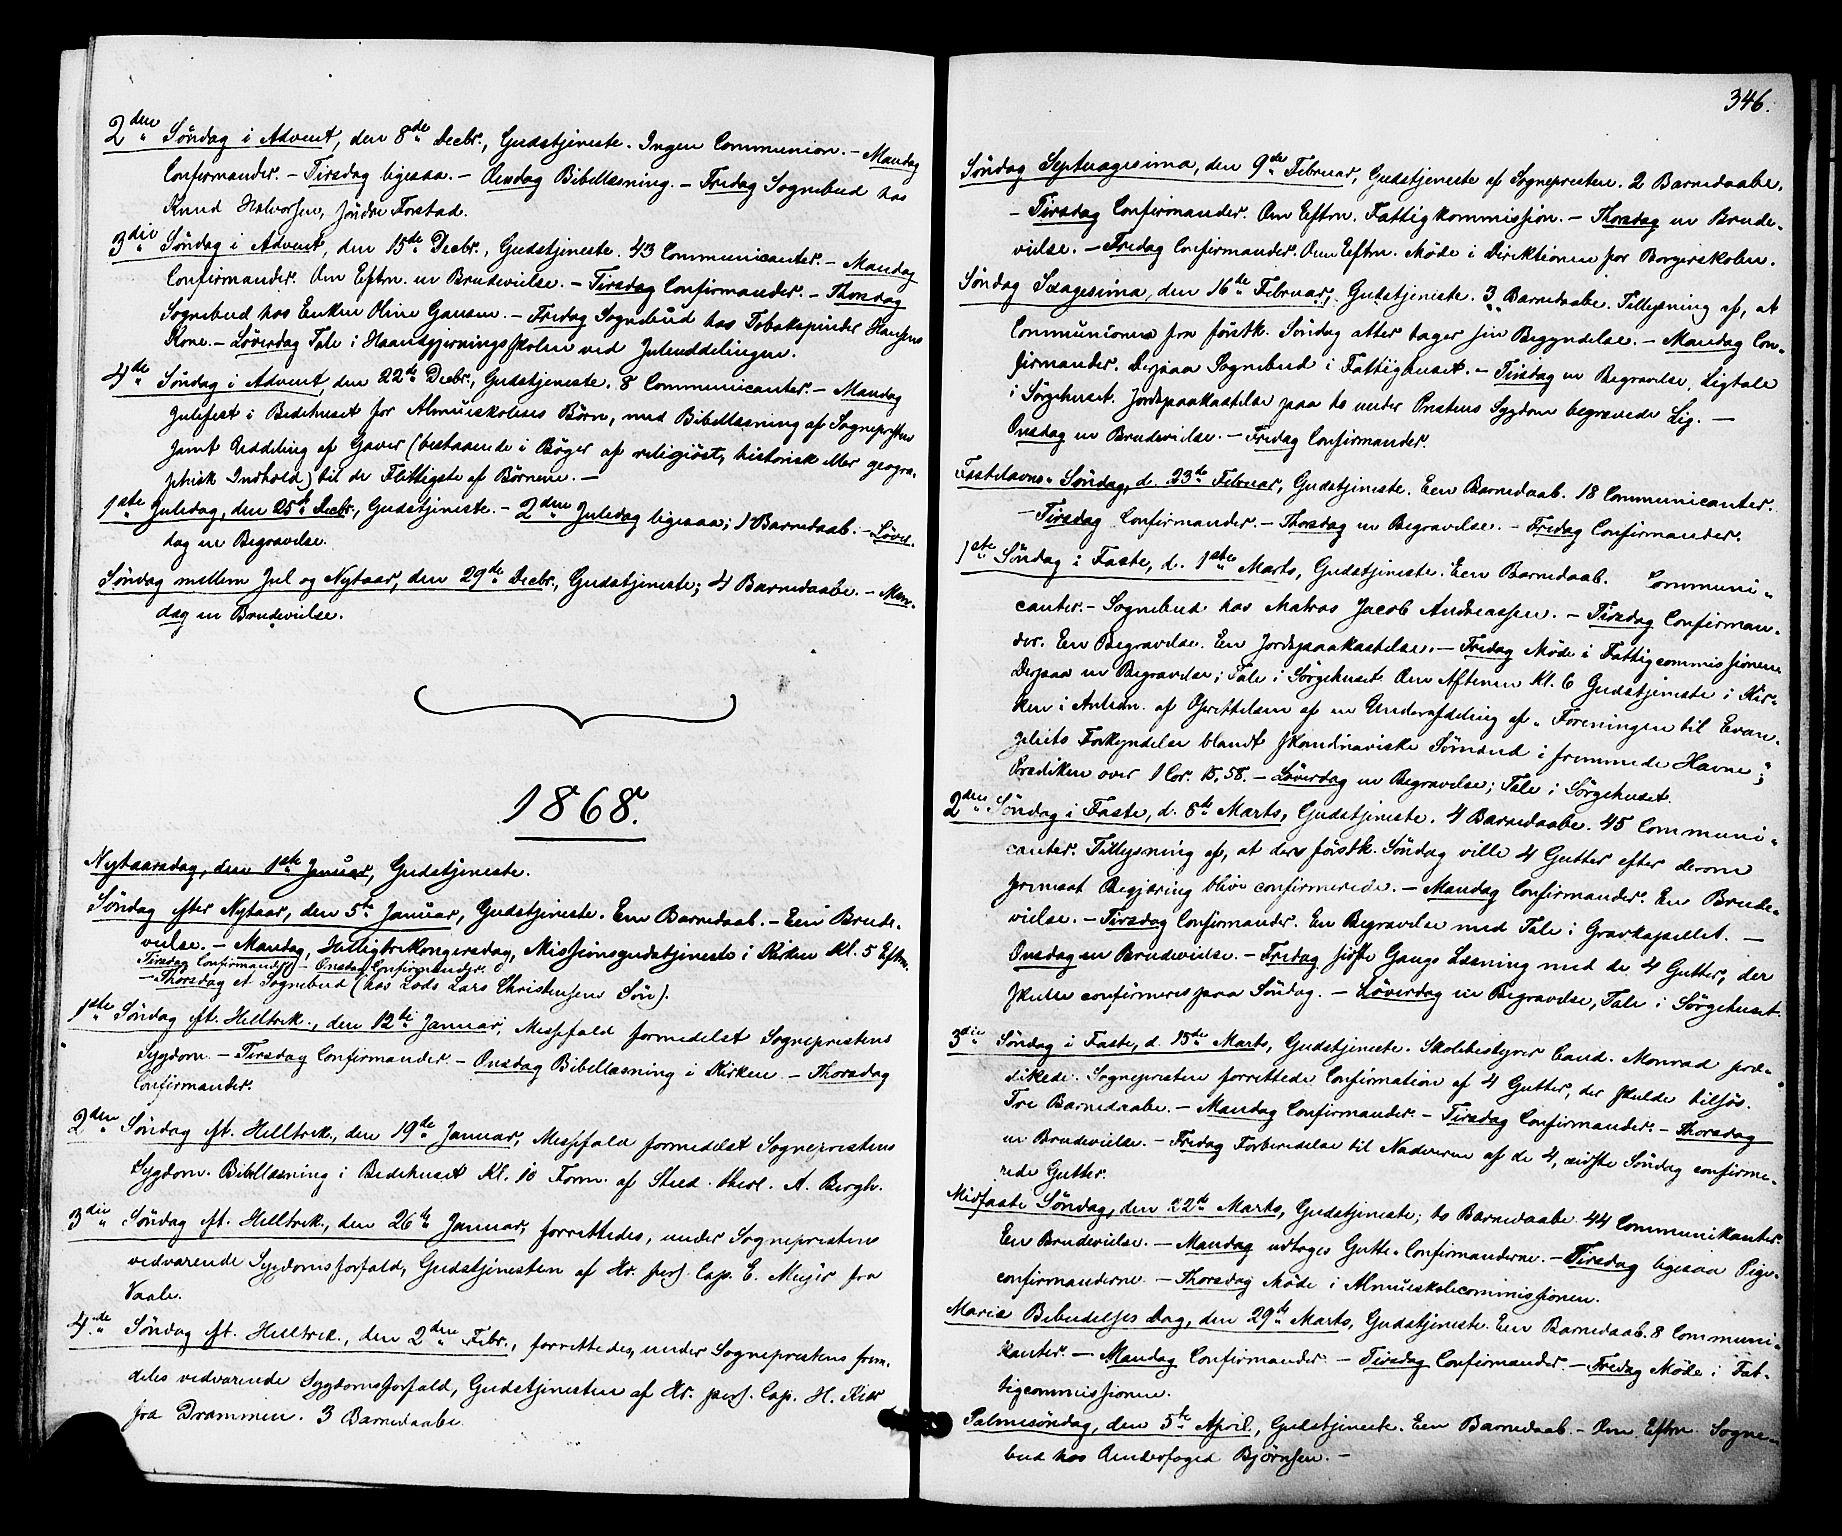 2den Søndag i Advent, den 8de Decbr., Gudstjeneste. Ingen Communion. – Mandag
Confirmander. – Tirsdag ligesaa. – Onsdag Bibellæsning. – Fredag Sognebud hos
Knud Halvorsen, Søndre Forstad.
3die Søndag i Advent, den 15de Decbr., Gudstjeneste. 43 Communicanter. – Mandag
Confirmander. Om Eftm. en Brudevielse. – Tirsdag Confirmander. – Thorsdag
Sognebud hos Enken Oline Gansen. – Fredag Sognebud hos Tobakspinder Hansens
Kone. – Løverdag Tale i Haandgjerningsskolen ved Juleuddelingen.
4de Søndag i Advent, den 22de Decbr., Gudstjeneste. 8 Communicanter. – Mandag
Julefest i Bedehuset for Almueskolens Børn, med Bibellæsning af Sognepresten
samt Uddeling af Gaver (bestaaende i Bøger af religiøst, historisk eller geogra-
phisk Indhold) til de Flittigste af Børnene. –
1ste Juledag, den 25de Decbr., Gudstjeneste. – 2den Juledag ligesaa; 1 Barnedaab. – Løver-
dag en Begravelse.
Søndag mellem Jul og Nytaar, den 29de Decbr., Gudstjeneste; 4 Barnedaabe. – Man-
dag en Brudevielse.
1868.
Nytaarsdag, den 1ste Januar, Gudstjeneste.
Søndag efter Nytaar, den 5te Januar, Gudstjeneste. Een Barnedaab. – Een Brude-
vielse. – Mandag, Helligtrekongersdag, Missionsgudstjeneste i Kirken Kl. 5 Eftm.
Tirsdag Confirmander – Onsdag Confirmander
– Thorsdag et Sognebud (hos Lods Lars Christensens Søn).
1ste Søndag eft. Helltrek., den 12te Januar, Messefald formedelst Sogneprestens
Sygdom. – Tirsdag Confirmander – Onsdag Bibellæsning i Kirken – Thorsdag
Confirmander.
2den Søndag eft. Helltrek., den 19de Januar, Messefald formedelst Sogneprestens
Sygdom. Bibellæsning i Bedehuset Kl. 10 Form. af Stud. theol. A. Bergh.
3die Søndag eft. Helltrek., den 26de Januar, forrettedes, under Sogneprestens
vedvarende Sygdomsforfald, Gudstjenesten af Hr. pers. Cap. E. Mejer fra
Vaale.
4de Søndag eft. Helltrek., den 2den Febr., forrettedes, under Sogneprestens frem-
deles vedvarende Sygdomsforfald, Gudstjenesten af Hr. pers. Cap. H. Kiær
fra Drammen. 3 Barnedaabe.
346.
Søndag Septuagesima, den 9de Februar, Gudstjeneste af Sognepresten. 2 Barnedaabe.
– Tirsdag Confirmander. Om Eftm. Fattigkommission. – Thorsdag en Brude-
vielse. – Fredag Confirmander. Om Eftm. Møde i Direktionen for Borgerskolen.
Søndag Sexagesima, den 16de Februar, Gudstjeneste. 3 Barnedaabe. Tillysning af, at
Communionen fra førstk. Søndag atter tager sin Begyndelse. – Mandag Con-
firmander. Derpaa Sognebud i Fattighuset. – Tirsdag en Begravelse, Ligtale
i Sørgehuset. Jordspaakastelse paa to under Prestens Sygdom begravede Lig. –
Onsdag en Brudevielse. – Fredag Confirmander.
Fastelavns-Søndag, d. 23de Februar, Gudstjeneste. Een Barnedaab. 18 Communicanter.
– Tirsdag Confirmander. – Thorsdag en Begravelse. – Fredag Confirmander.
1ste Søndag i Faste, d. 1ste Marts, Gudstjeneste. Een Barnedaab. Communi-
canter. – Sognebud hos Matros Jacob Andreassen. – Tirsdag Confirman-
der. Een Begravelse. En Jordspaakastelse. – Fredag Møde i Fattigcommissionen
Derpaa en Begravelse; Tale i Sørgehuset. Om Aftenen Kl. 6 Gudstjeneste i Kir-
ken i Anledn. af Oprettelsen af en Underafdeling af "Foreningen til Evan-
geliets Forkyndelse blandt skandinaviske Sømænd i fremmede Havne";
Prædiken over 1 Cor. 15,58. – Løverdag en Begravelse; Tale i Sørgehuset.
2den Søndag i Faste, d. 8de Marts, Gudstjeneste. 4 Barnedaabe. 45 Communi-
canter. Tillysning af, at der førstk. Søndag ville 4 Gutter efter derom
fremsat Begjæring blive confirmerede. – Mandag Confirmander. En Brude-
vielse. – Tirsdag Confirmander. En Begravelse med Tale i Gravkapellet. –
Onsdag en Brudevielse. – Fredag sidste Gangs Læsning med de 4 Gutter, der
skulle confirmeres paa Søndag. – Løverdag en Begravelse, Tale i Sørgehuset.
3die Søndag i Faste, d. 15de Marts, Gudstjeneste. Skolebestyrer Cand. Monrad præ-
dikede. Sognepresten forrettede Confirmation af 4 Gutter, der skulde tilsøs.
Tre Barnedaabe. – Mandag Confirmander. – Tirsdag Confirmander. – Thorsdag
en Brudevielse. – Fredag Forberedelse til Nadveren af de 4, sidste Søndag confirme-
rede Gutter.
Midfaste Søndag, den 22de Marts, Gudstjeneste; to Barnedaabe. 44 Communikanter.
En Brudevielse. – Mandag udtoges Gutte-Confirmanderne. – Tirsdag ligesaa Pige-
confirmanderne. – Thorsdag Møde i Almueskolecommissionen.
Mariæ Bebudelses Dag, den 29de Marts, Gudstjeneste. Een Barnedaab. 8 Communi-
kanter. – Mandag Confirmander. – Tirsdag Confirmander. – Fredag Møde i Fat-
tigcommissionen.
Palmesøndag, den 5te April, Gudstjeneste. Een Barnedaab. – Om Eftm. Sogne-
bud hos Underfoged Bjørnsen. –